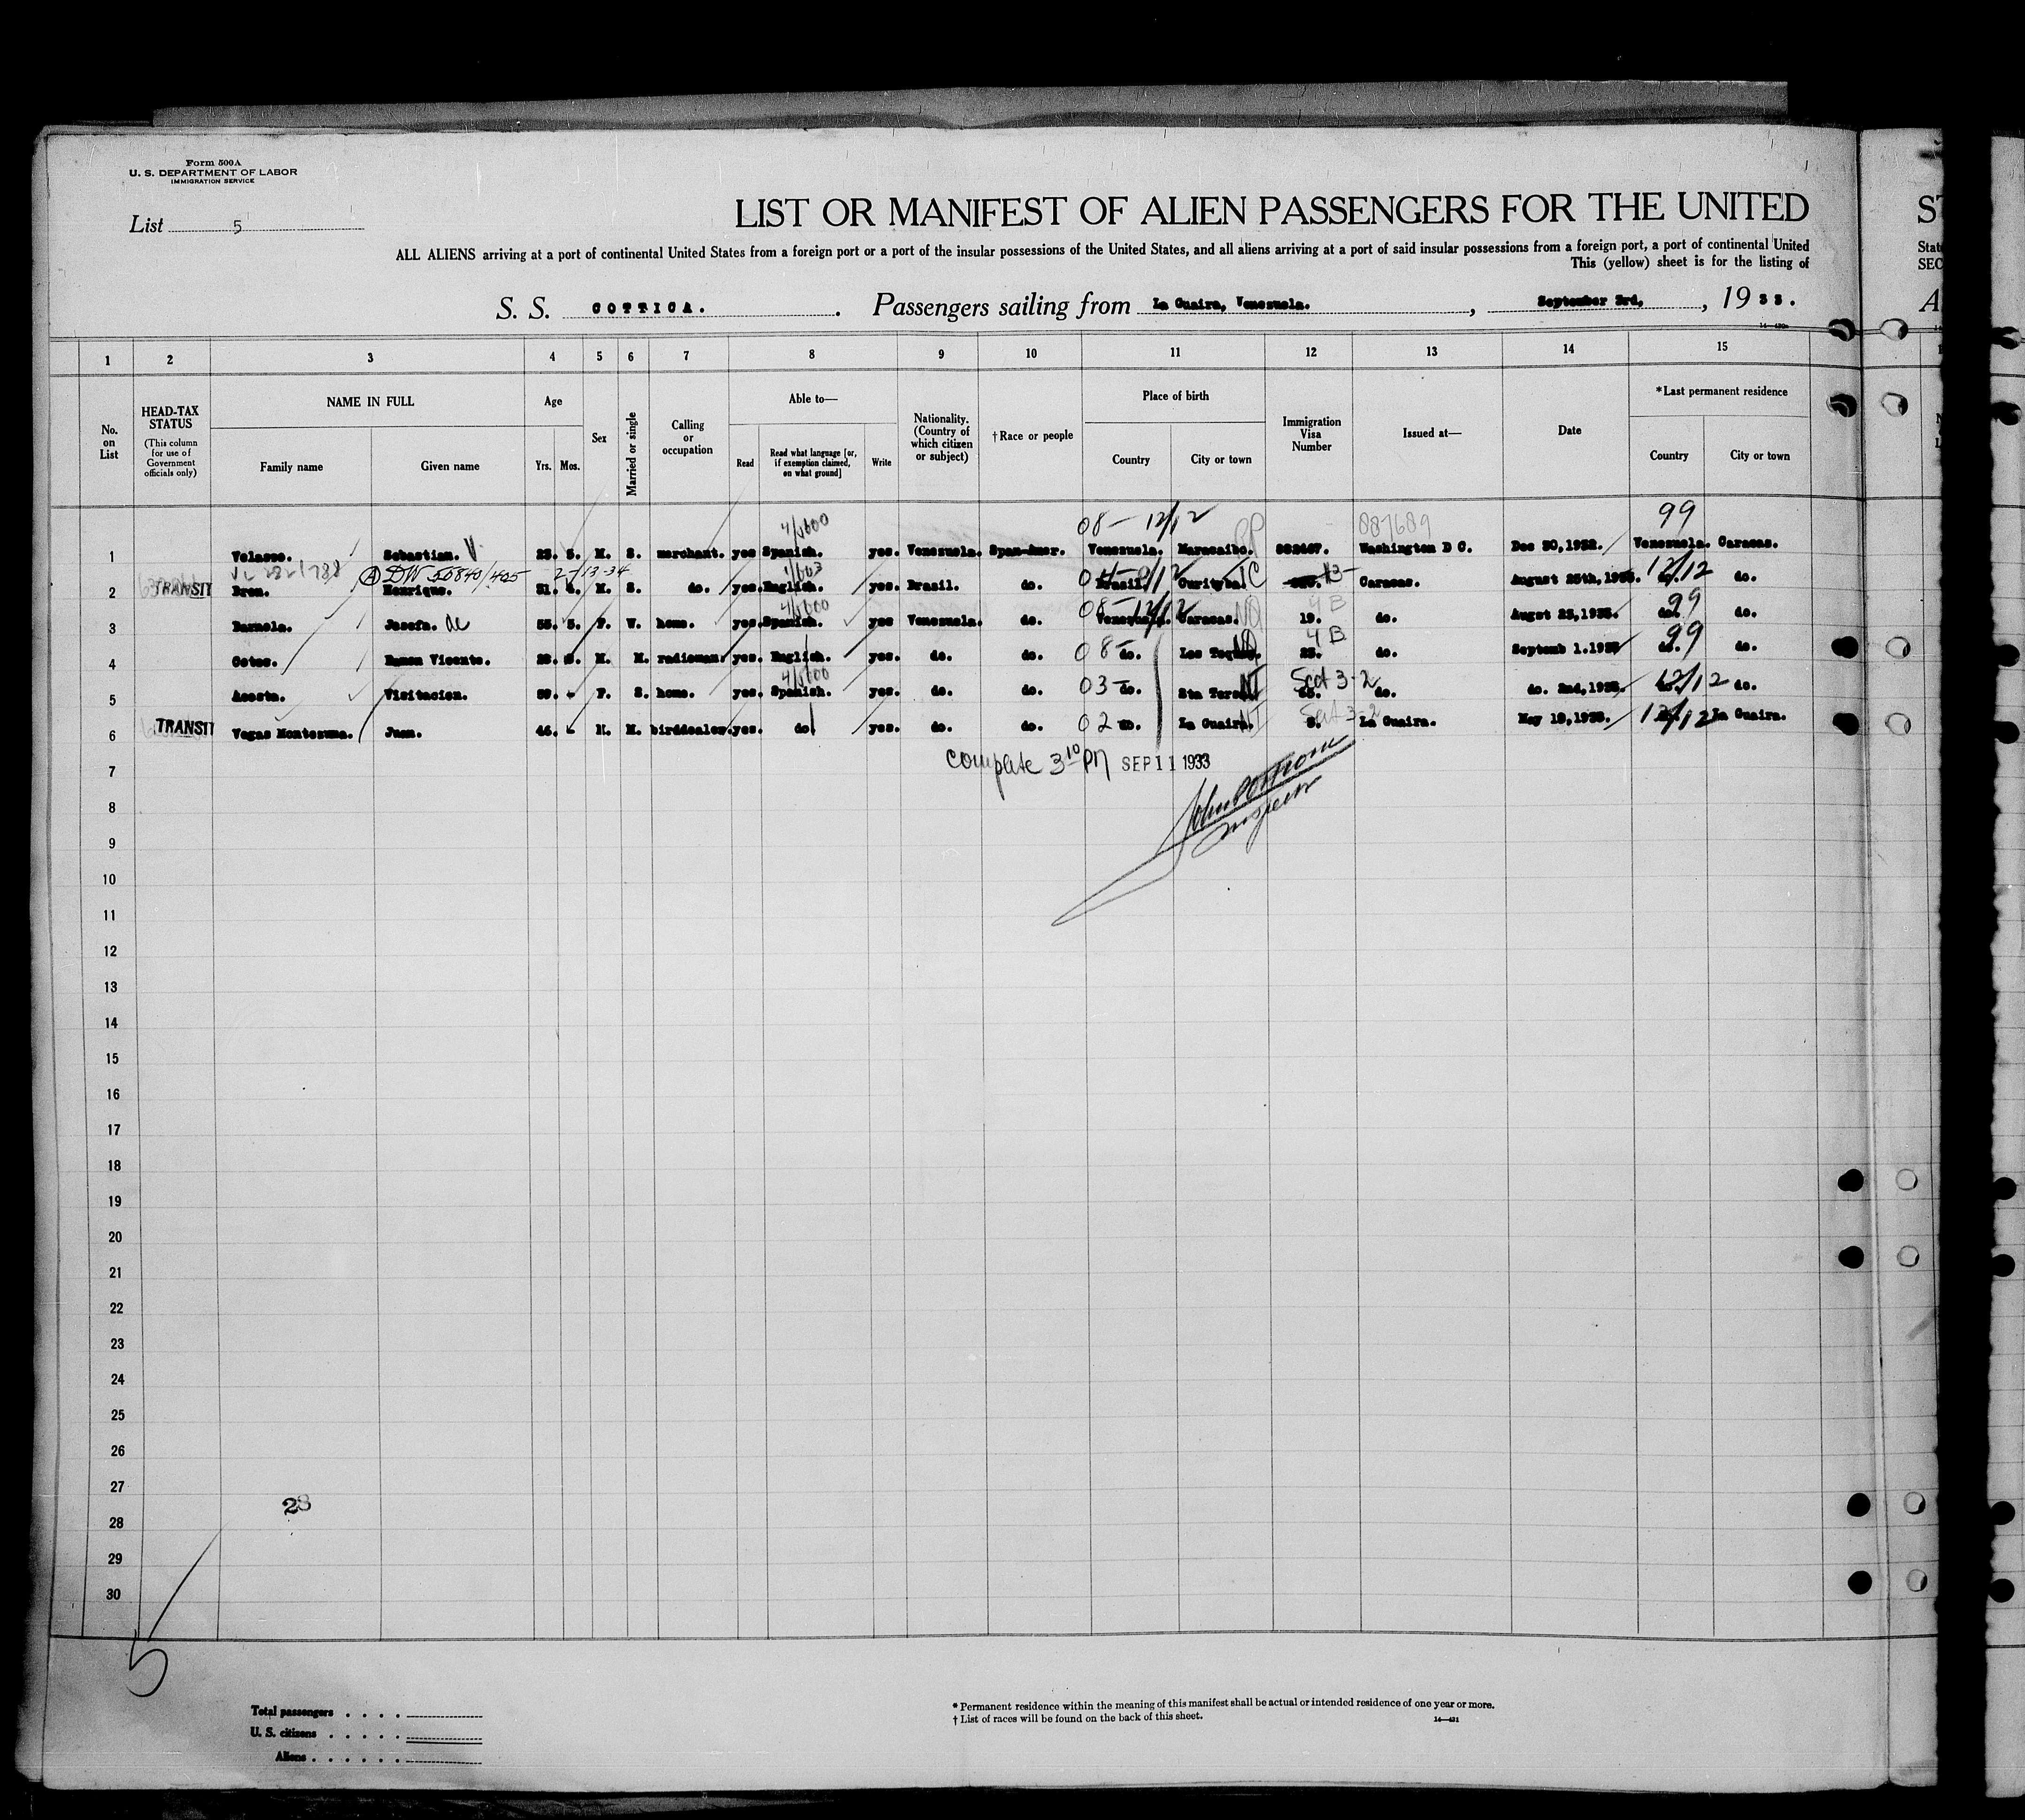 Form 500A
U. S. DEPARTMENT OF LABOR
IMMIGRATION SERVICE
List 5
LIST OR MANIFEST OF ALIEN PASSENGERS FOR THE UNITED
ALL ALIENS arriving at a port of continental United States from a foreign port or a port of the insular possessions of the United States, and all aliens arriving at a port of said insular possessions from a foreign port, a port of continental United
This (yellow) sheet is for the listing of
S. S. COTTICA. Passengers sailing from La Guaira, Venezuela. , September 3rd, , 1933.
1 2 3 4 5 6 7 8 9 10 11 12 13 14 15
No. on List
HEAD-TAX STATUS
(This column for use of Government officials only)
NAME IN FULL
Family name Given name
Age
Yrs. Mos.
Sex
Married or single
Calling or occupation
Able to—
Read
Read what language [or, if exemption claimed, on what ground]
Write
Nationality. (Country of which citizen or subject)
†Race or people
Place of birth
Country City or town
Immigration Visa Number
Issued at—
Date
*Last permanent residence
Country City or town
4/5600 08- 12/12 PP 887689 99
1 Velasco. Sebastian. V 23. 5. M. S. merchant. yes Spanish. yes. Venezuela. Span-Amer. Venezuela. Maracaibo. Washington D C. Dec 30,1932. Venezuela. Caracas.
A DW 50840/405 2-13-34
2 TRANSIT Henrique. 31. M. S. do. yes. English. yes. Brasil. do. Brasil. Curityba. Caracas. August 25th, 12/12 do.
4/5600 08- 12/12 4 B 99
3 Josefa. de 55. 5. F. W. home. yes. Spanish. yes Venezuela. do. Venezuela. Caracas. 19. do. August 23,1933. do. do.
4 Ramon Vicente. M. M. radioman. yes. English. yes. do. do. 08- do. 4 B 99 do. Septemb 1. do. do.
4/5600
5 Acosta. Visitacion. F. S. home. yes. Spanish. yes. do. do. 03- do. NT Sect 3-2 do. do. 2nd,1933. 12/12 do.
6 TRANSIT Vegas Montezuma. Juan. 46. M. M. birddealer. yes. do yes. do. do. 02 do. La Guaira. NT Sect 3-2 La Guaira. May 19,1933. 12/12 La Guaira.
7 complete 3 10 PM SEP 11 1933
8
Inspector
9
10
11
12
13
14
15
16
17
18
19
20
21
22
23
24
25
26
27
28
28
29
30
5
Total passengers . . . .
U. S. citizens . . . . .
Aliens . . . . . .
* Permanent residence within the meaning of this manifest shall be actual or intended residence of one year or more.
† List of races will be found on the back of this sheet.
14—421